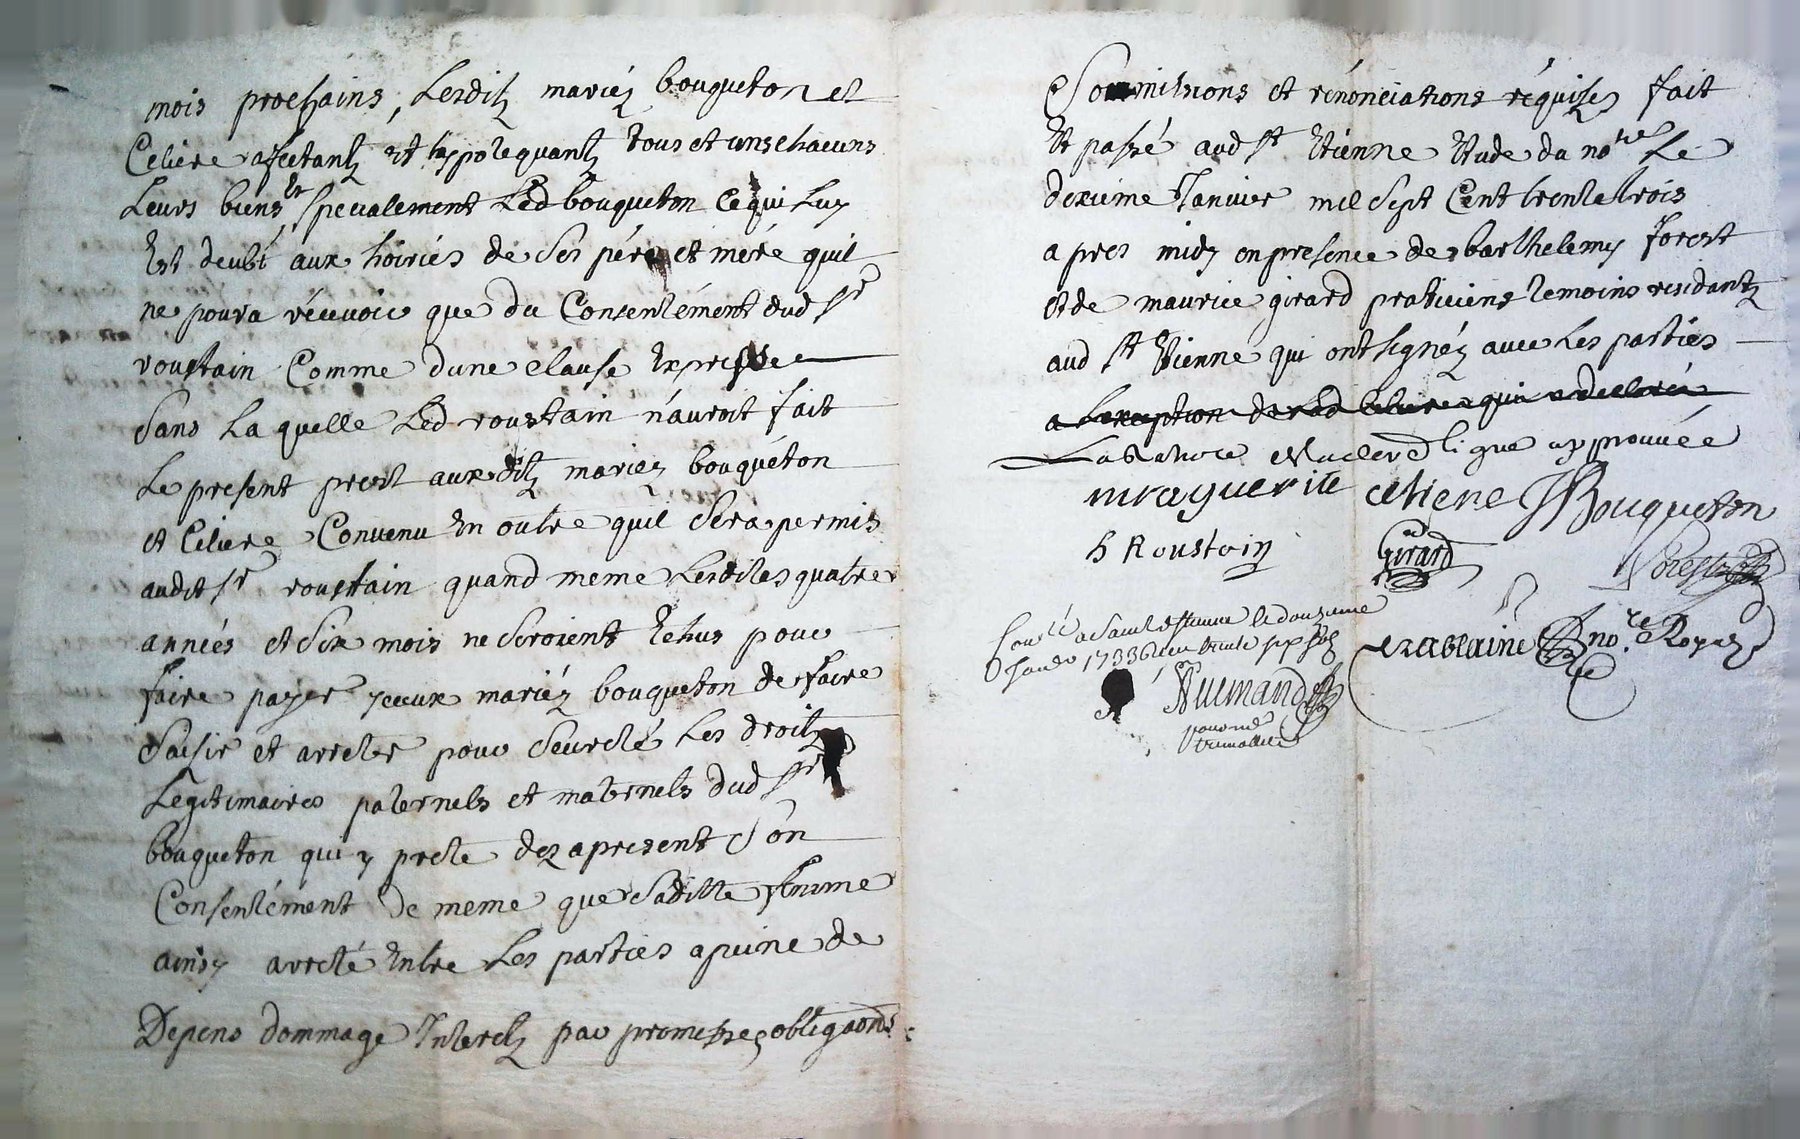 mois prochains, Lesditz mariéz bouqueton et
Celiere affectantz et hypotequantz tous et uns chacuns
Leurs biens et specialement Led bouqueton Ce qui Luy
Est deubt aux hoiries de Ses pére et mére quil
ne poura récevoir que du Consentément dud Sr
roustain Comme dune clause Expresse
Sans La quelle Led roustain n'auroit fait
Le present prest auxditz mariez bouquéton
et Celiere Convenu En outre quil Sera permis
audit Sr roustain quand meme Lesdites quatre
années et Six mois ne Seroient Echus pour
faire payer yceux mariéz bouqueton de faire
Saisir et arreter pour Seurcté Les droitz
Legitimaires paternels et maternels dud Sr
bouqueton qui y prete dez apresent Son
Consentément de meme que Saditte femme
ainsy arrcté Entre Les parties a peine de
Depens dommage Interetz par promesses obligaons
Soumissions et rénonciations réquises fait
Et passé aud St Etienne Etude du nore Le
dexieme Janvier mil Sept Cent trente trois
apres midy en presence de barthelemy forest
et de maurice girard praticiens temoins residantz
aud St Etienne qui ont signéz avec Les parties
a Lexception de Lad Celiere qui a declaré
La rature de la ligne approuvée
marguerite celiere JBouqueton
h Roustain Girard forest
Conlé a Saint Etienne le douzieme
Janer 1733 Reçu trente sept
no.re Royal